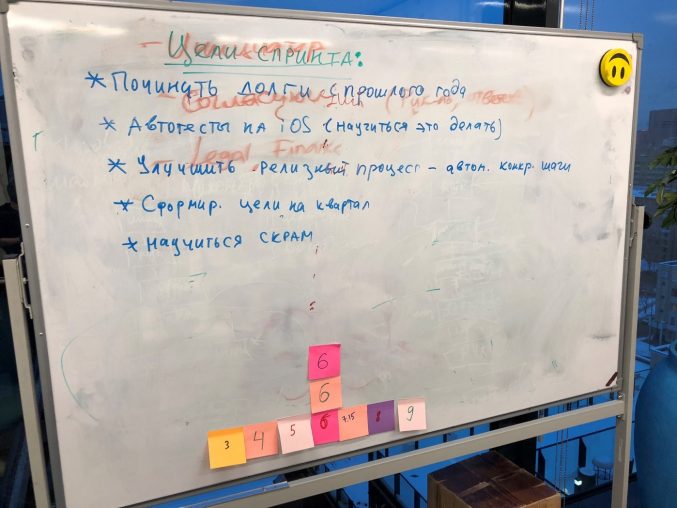 Цели спринта:
* Починить долги с прошлого года
* Автотесты на iOS (научиться это делать)
* Улучшить релизный процесс - автом. конкр. шаги
* Сформир. цели на квартал
* научиться СКРАМ
- Legal Finance
6
6
3 4 5 6 7,15 8 9